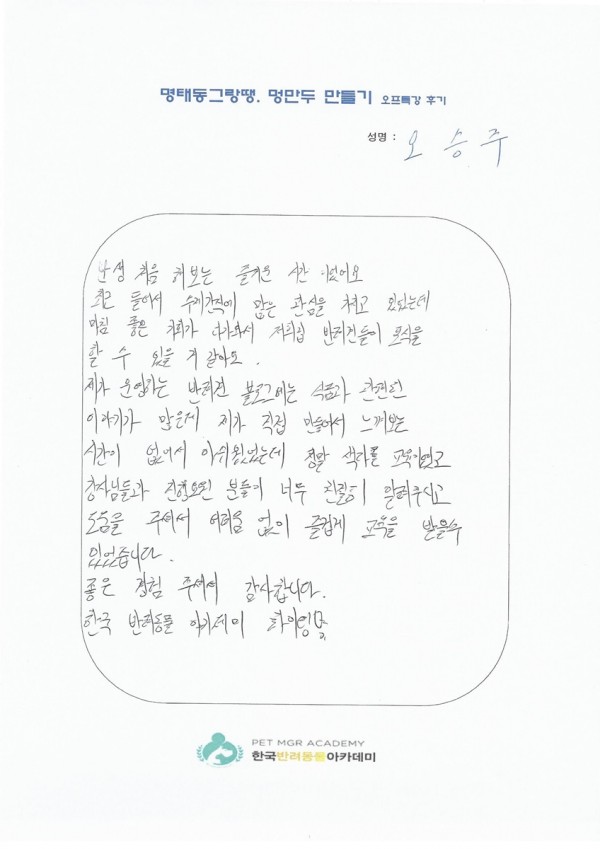 명태동그랑땡. 멍만두 만들기 오프특강 후기
성명 : 오승주
난생 처음 해보는 즐거운 시간 이었어요
최근 들어서 수제간식에 많은 관심을 가지고 있었는데
마침 좋은 기회가 다가와서 저희집 반려견들이 포식을
할 수 있을 거 같아요.
제가 운영하는 반려견 블로그에는 식품과 관련된
이야기가 많은데 제가 직접 만들어서 느껴보는
시간이 없어서 아쉬웠었는데 정말 색다른 교육이었고
강사님들과 진행요원 분들이 너무 친절히 알려주시고
도움을 주셔서 어려움 없이 즐겁게 교육을 받을수
있었습니다.
좋은 경험 주셔서 감사합니다.
한국 반려동물 아카데미 화이팅
PET MGR ACADEMY
한국반려동물아카데미